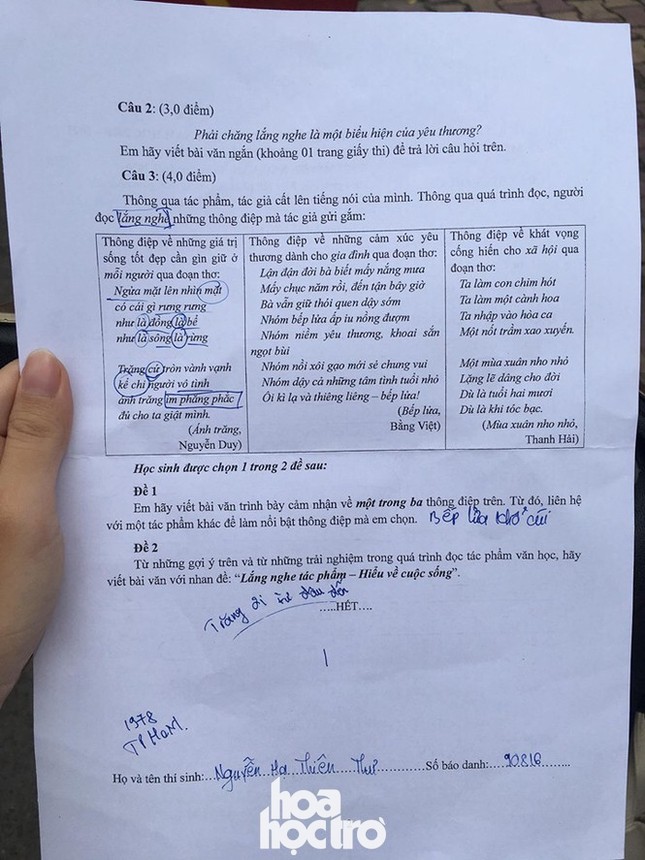 Câu 2: (3,0 điểm)
Phải chăng lắng nghe là một biểu hiện của yêu thương?
Em hãy viết bài văn ngắn (khoảng 01 trang giấy thi) để trả lời câu hỏi trên.
Câu 3: (4,0 điểm)
Thông qua tác phẩm, tác giả cất lên tiếng nói của mình. Thông qua quá trình đọc, người
đọc lắng nghe những thông điệp mà tác giả gửi gắm:
Thông điệp về những giá trị
sống tốt đẹp cần gìn giữ ở
mỗi người qua đoạn thơ:
Ngửa mặt lên nhìn mặt
có cái gì rưng rưng
như là đồng là bể
như là sông là rừng
Trăng cứ tròn vành vạnh
kể chi người vô tình
ánh trăng im phăng phắc
đủ cho ta giật mình.
(Ánh trăng,
Nguyễn Duy)
Thông điệp về những cảm xúc yêu
thương dành cho gia đình qua đoạn thơ:
Lận đận đời bà biết mấy nắng mưa
Mấy chục năm rồi, đến tận bây giờ
Bà vẫn giữ thói quen dậy sớm
Nhóm bếp lửa ấp iu nồng đượm
Nhóm niềm yêu thương, khoai sắn
ngọt bùi
Nhóm nồi xôi gạo mới sẻ chung vui
Nhóm dậy cả những tâm tình tuổi nhỏ
Ôi kì lạ và thiêng liêng – bếp lửa!
(Bếp lửa,
Bằng Việt)
Thông điệp về khát vọng
cống hiến cho xã hội qua
đoạn thơ:
Ta làm con chim hót
Ta làm một cành hoa
Ta nhập vào hòa ca
Một nốt trầm xao xuyến.
Một mùa xuân nho nhỏ
Lặng lẽ dâng cho đời
Dù là tuổi hai mươi
Dù là khi tóc bạc.
(Mùa xuân nho nhỏ,
Thanh Hải)
Học sinh được chọn 1 trong 2 đề sau:
Đề 1
Em hãy viết bài văn trình bày cảm nhận về một trong ba thông điệp trên. Từ đó, liên hệ
với một tác phẩm khác để làm nổi bật thông điệp mà em chọn. Bếp lửa
Đề 2
Từ những gợi ý trên và từ những trải nghiệm trong quá trình đọc tác phẩm văn học, hãy
viết bài văn với nhan đề: “Lắng nghe tác phẩm – Hiểu về cuộc sống”.
.....HẾT....
Trăng ơi từ đâu đến
1978
TP HCM.
Họ và tên thí sinh:...Nguyễn Hạ Thiên Thư Số báo danh:...90816
hoa
học trò